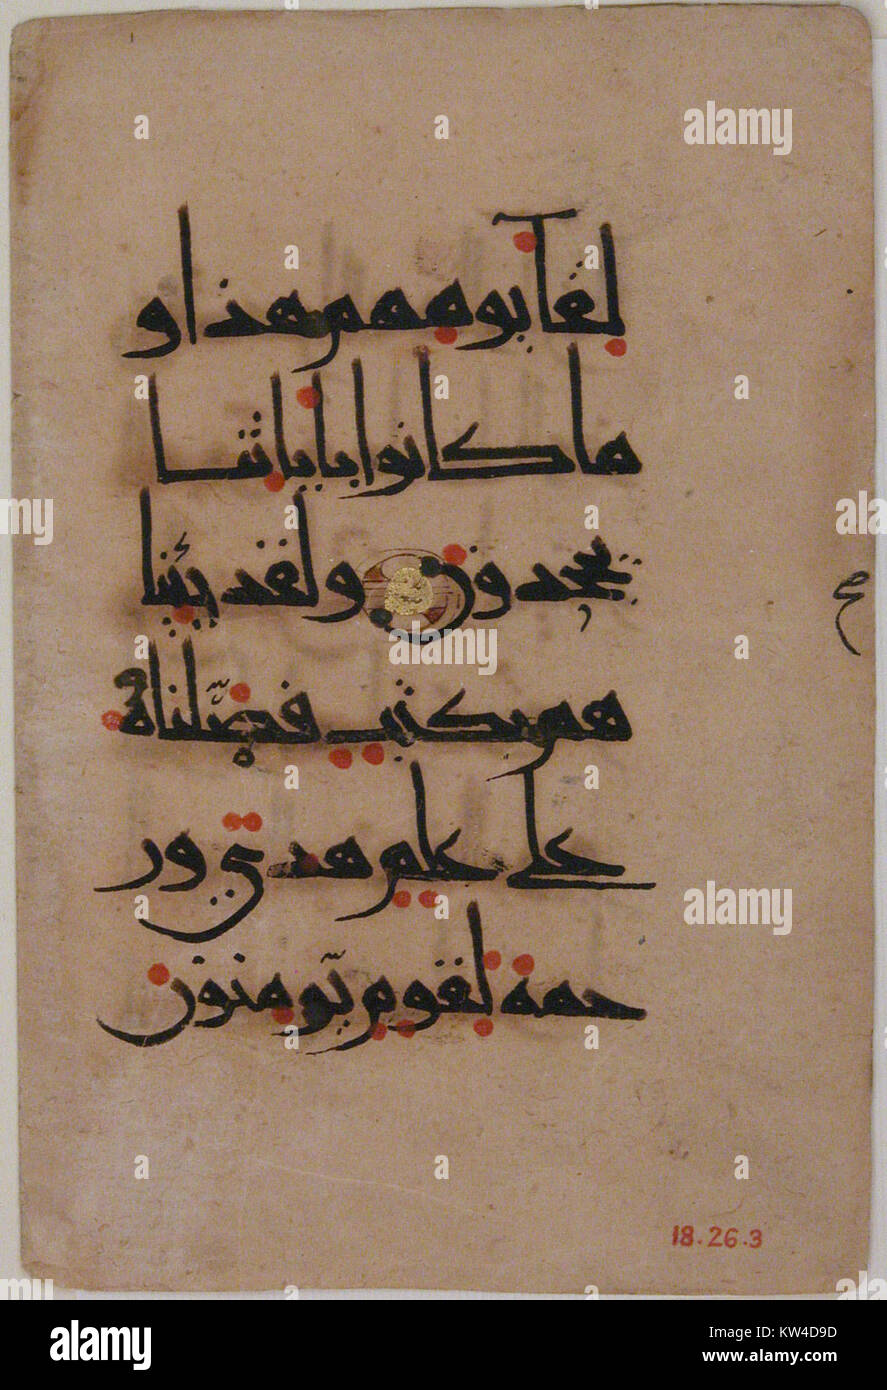 لقآ يومهم هذا و
ما كانوا باياتنا
يجحدون ولقد جئنا
هم بكتب فصّلناه
على علم هدى ور
حمة لقوم يؤمنون
18.26.3
alamy
Image ID: KW4D9D
www.alamy.com